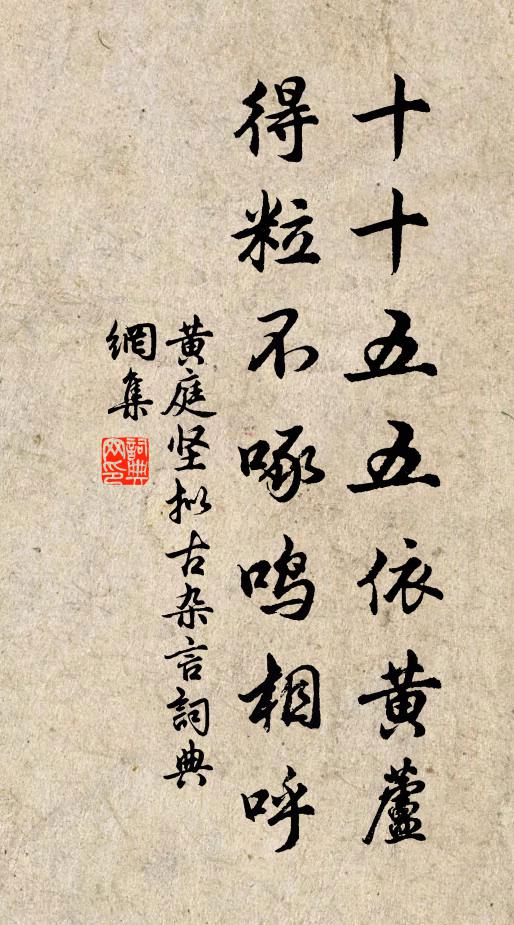 十十五五依黄蘆
得粒不啄鳴相呼
黄庭坚拟古杂言詞典
網集
詞典
网印